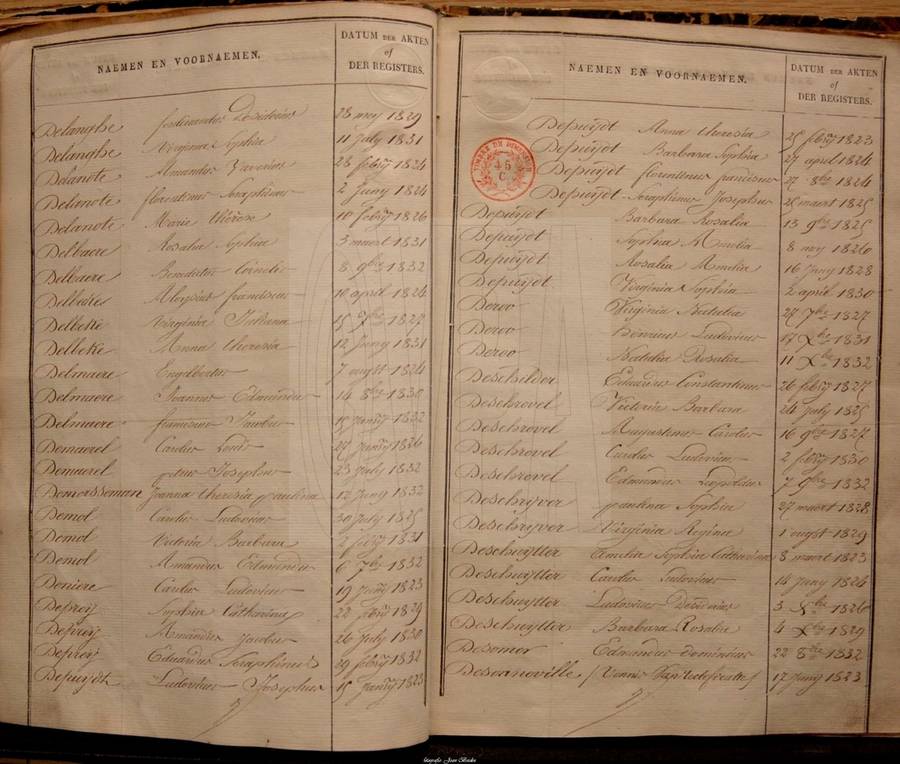 NAEMEN EN VOORNAEMEN.
DATUM DER AKTEN
of
DER REGISTERS.
Delanghe ferdinandus Desiderius 28 mey 1829
Delanghe Virginia Sophia 11 July 1831
Delanote Amandus Xaverius 28 febry 1824
Delanote florentinus Seraphinus 2 Juny 1824
Delanote Marie thérèse 10 febry 1826
Delbaere Rosalia Sophia 3 maert 1831
Delbaere Benedictus Cornelis 8 9bre 1832
Delbaere Aloysius franciscus 10 april 1824
Delbeke Virginia Juliana 15 7bre 1827
Delbeke Anna theresia 12 Juny 1831
Delmaere Engelbertus 7 augst 1824
Delmaere Joannes Edmundus 14 8bre 1830
Delmaere franciscus Jacobus 15 Janry 1832
Demaerel Carolus Louis 27 Janry 1826
Demaerel petrus Josephus 23 July 1832
Demorsseman Joanna theresia paulina 12 Juny 1832
Demol Carolus Ludovicus 30 July 1825
Demol Victoria Barbara 2 febry 1831
Demol Amandus Edmundus 6 7bre 1832
Deniere Carolus Ludovicus 19 Janry 1823
Deprey Sophia Catharina 22 febry 1829
Deprey Amandus Jacobus 26 July 1830
Deprey Eduardus Seraphinus 29 febry 1832
Depuydt Ludovicus Josephus 15 Janry 1823
NAEMEN EN VOORNAEMEN.
DATUM DER AKTEN
of
DER REGISTERS.
TIMBRE DE DIMENSION
45
C.
Depuydt Anna theresia 25 febry 1823
Depuydt Barbara Sophia 27 april 1824
Depuydt florentinus franciscus 27 8bre 1824
Depuydt Seraphinus Josephus 28 maert 1825
Depuydt Barbara Rosalia 13 9bre 1825
Depuydt Sophia Amelia 8 mey 1826
Depuydt Rosalia Amelia 16 Juny 1828
Depuydt Virginia Sophia 2 april 1830
Deroo Virginia Natalia 27 7bre 1827
Deroo Henricus Ludovicus 17 Xbre 1831
Deroo Natalia Rosalia 11 Xbre 1832
Deschilder Eduardus Constantinus 26 febry 1825
Deschrevel Victoria Barbara 24 July 1825
Deschrevel Augustinus Carolus 16 9bre 1827
Deschrevel Carolus Ludovicus 2 febry 1830
Deschrevel Edmundus Leopoldus 7 9bre 1832
Deschryver paulina Sophia 27 maert 1828
Deschryver Virginia Regina 1 augst 1829
Deschuytter Amelia Sophia Catharina 8 maert 1823
Deschuytter Carolus Ludovicus 14 Juny 1824
Deschuytter Ludovicus Desiderius 3 8bre 1826
Deschuytter Barbara Rosalia 4 Xbre 1829
Desomer Edmundus Dominicus 22 8bre 1832
17 Juny 1823
fotografie Joan Backx